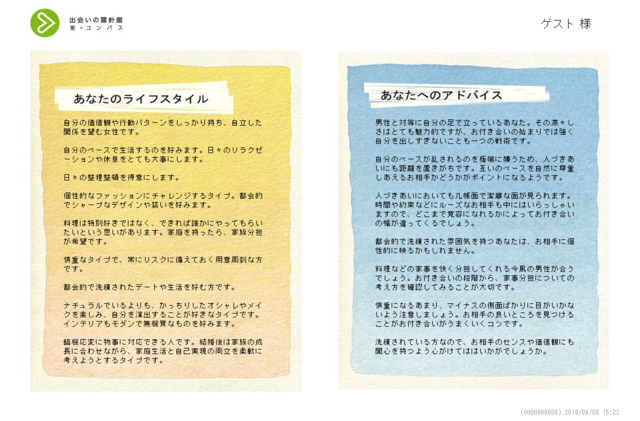 出会いの羅針盤
愛・コンパス
ゲスト 様
あなたのライフスタイル
自分の価値観や行動パターンをしっかり持ち、自立した
関係を望む女性です。
自分のペースで生活するのを好みます。日々のリラクゼ
ーションや休息をとても大事にします。
日々の整理整頓を得意にします。
個性的なファッションにチャレンジするタイプ。都会的
でシャープなデザインや装いを好みます。
料理は特別好きではなく、できれば誰かにやってもらい
たいという思いがあります。家庭を持ったら、家族分担
が希望です。
慎重なタイプで、常にリスクに備えておく用意周到な方
です。
都会的で洗練されたデートや生活を好む方です。
ナチュラルでいるよりも、かっちりしたオシャレやメイ
クを楽しみ、自分を演出することが好きなタイプです。
インテリアもモダンで無機質なものを好みます。
臨機応変に物事に対応できる人です。結婚後は家族の成
長に合わせながら、家庭生活と自己実現の両立を柔軟に
考えようとするタイプです。
あなたへのアドバイス
男性と対等に自分の足で立っているあなた。その凛々し
さはとても魅力的ですが、お付き合いの始まりでは強く
自分を出しすぎないことも一つの戦術です。
自分のペースが乱されるのを極端に嫌うため、人づきあ
いにも距離を置きがちです。互いのペースを自然に尊重
しあえるお相手かどうかがポイントになるようです。
人づきあいにおいても几帳面で潔癖な面が見られます。
時間や約束などにルーズなお相手も中にはいらっしゃい
ますので、どこまで寛容になれるかによってお付き合い
の幅が違ってくるでしょう。
都会的で洗練された雰囲気を持つあなたは、お相手に個
性的に映るかもしれません。
料理などの家事を快く分担してくれる今風の男性が合う
でしょう。お付き合いの段階から、家事分担についての
考え方を確認してみることが大切です。
慎重になるあまり、マイナスの側面ばかりに目がいかな
いよう注意しましょう。お相手の良いところを見つける
ことがお付き合いがうまくいくコツです。
洗練されている方なので、お相手のセンスや価値観にも
関心を持つよう心がけてははいかがでしょうか。
(0000000000) 2018/06/08 15:22